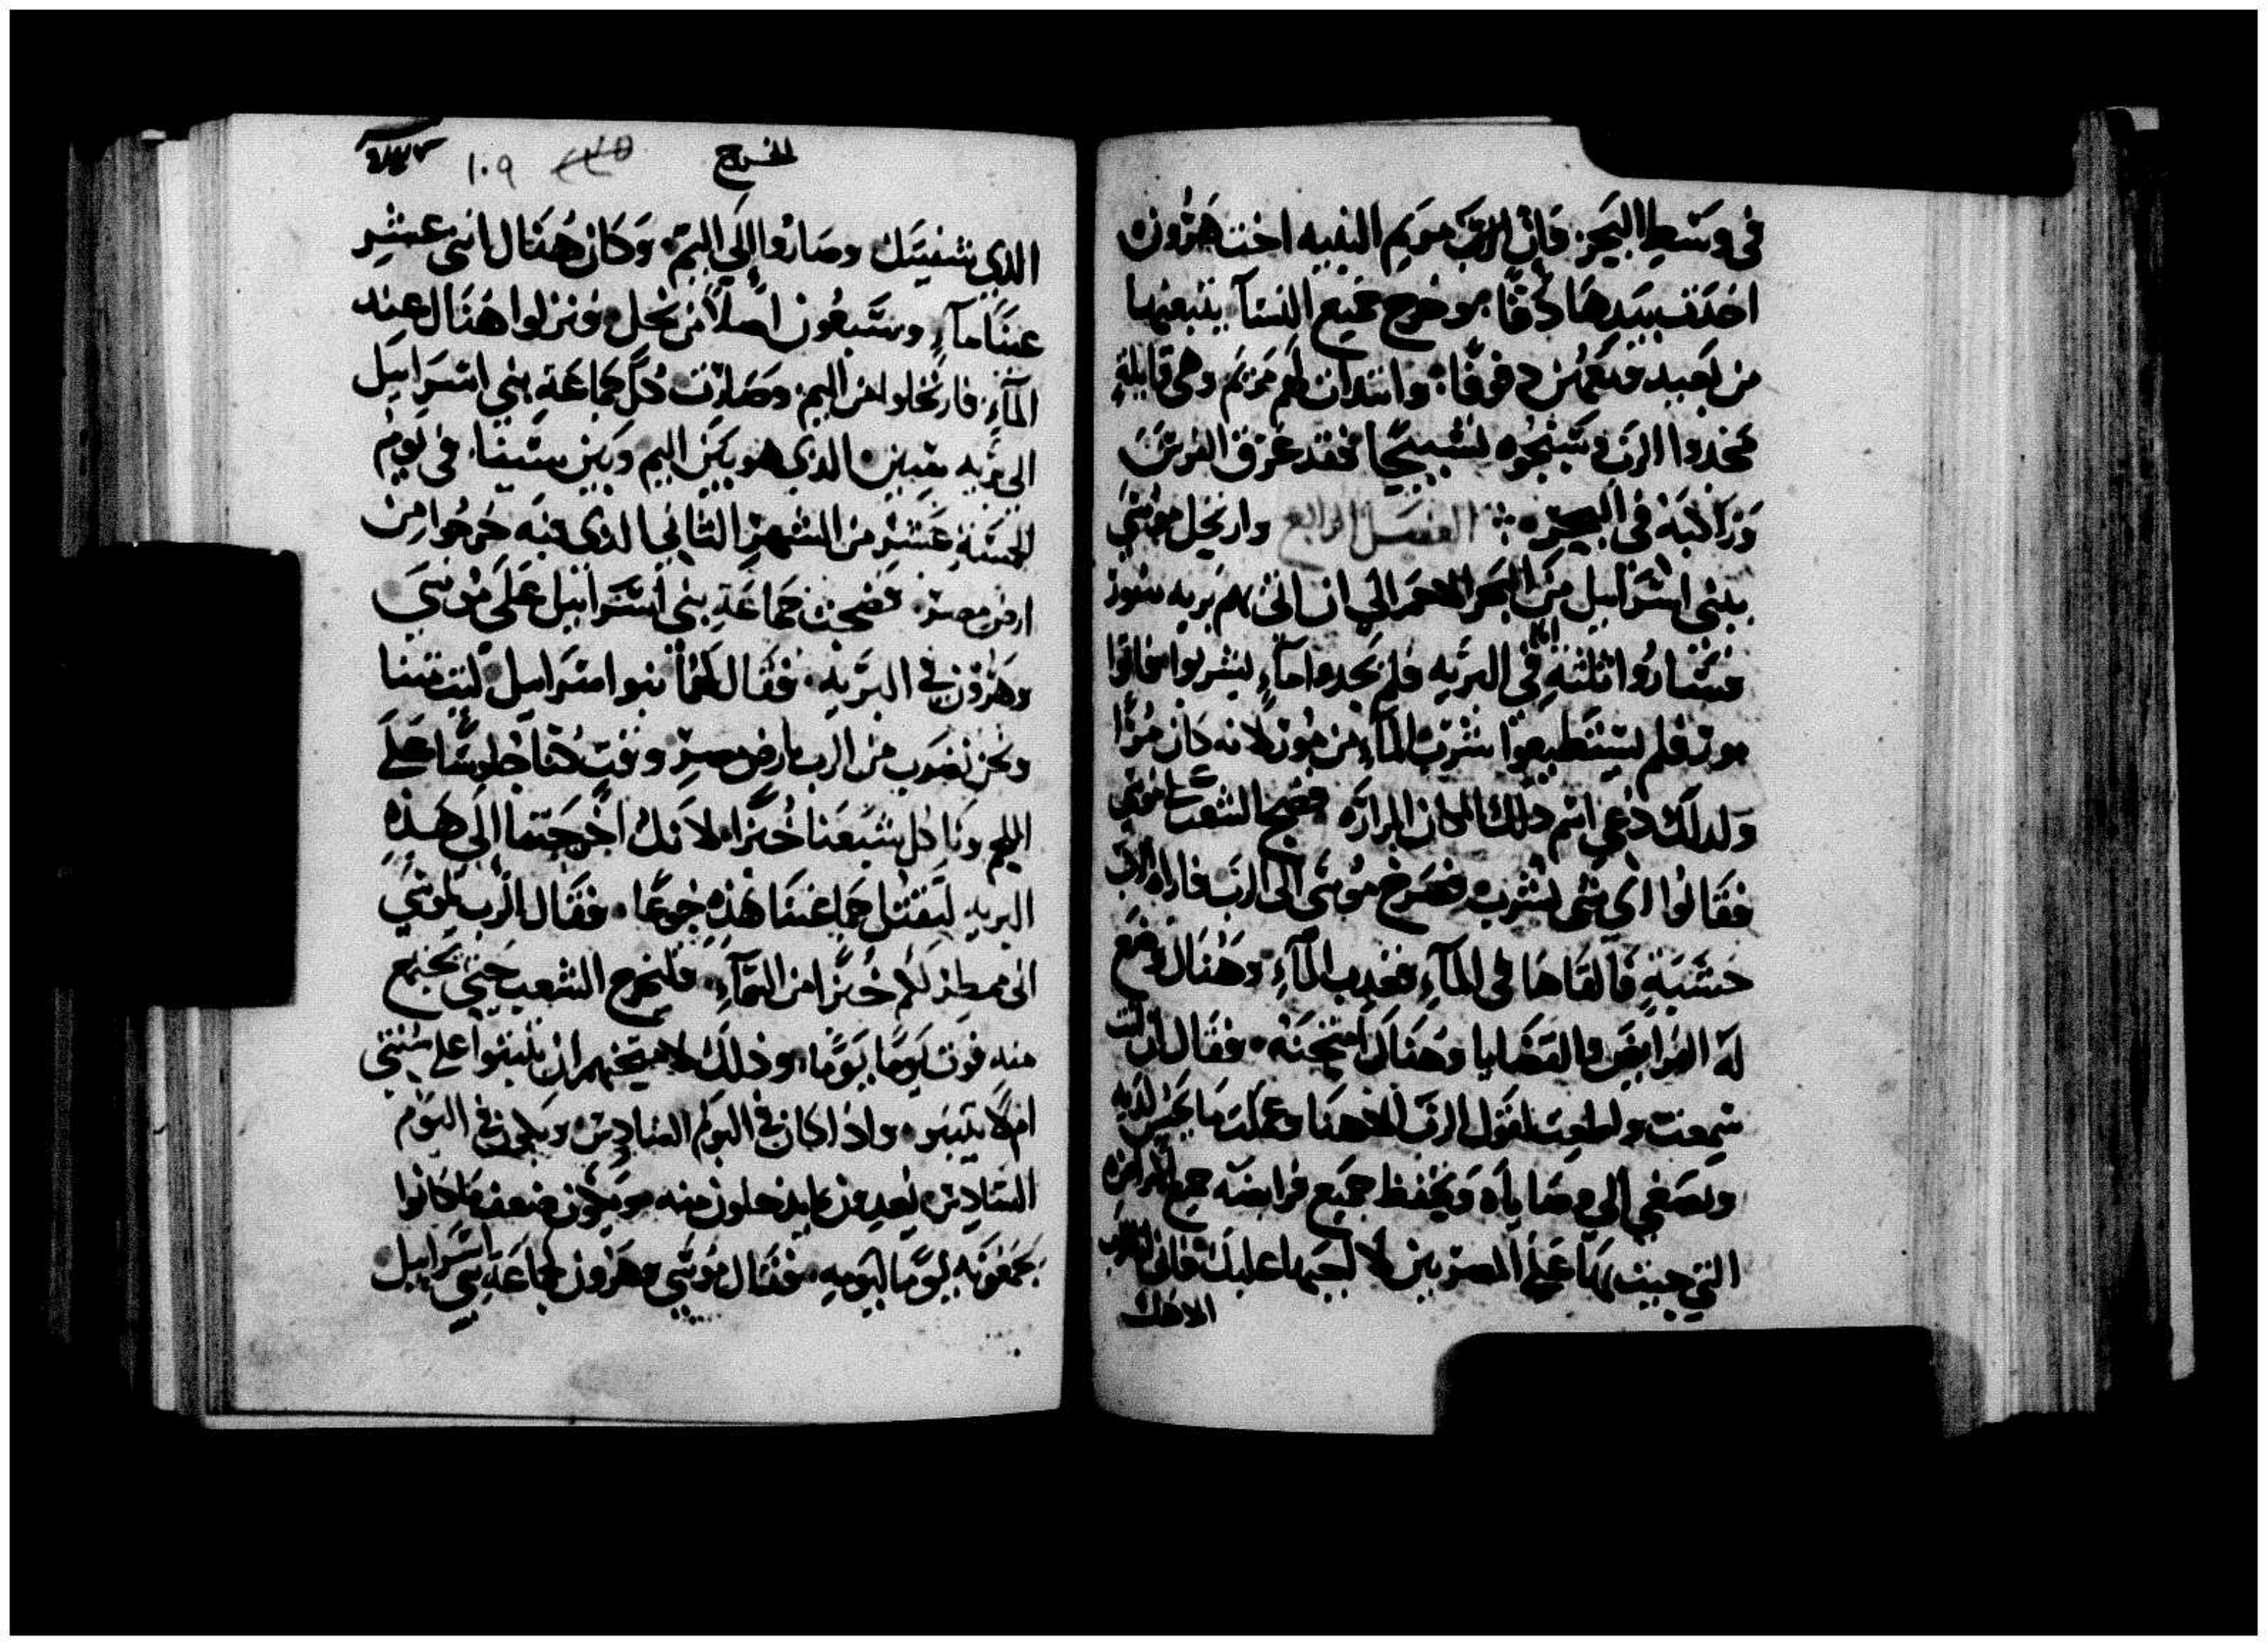 في وسَطِ البَحرِ. فان الربّ مريم النبيه اخت هَرُون
اخذت بيَدهَا دُفًا. وخرج جميع النسآ يتبعنها
من بَعيد معهُن دفوفًا: وابتدات لهم مريَم وهي قايلة
مجدوا الربَّ وسَبّحُوه تسبيحًا فقد غرق الفرسَ
وَرَاكبَهُ في البحر ⁘ الفصل الرابع وارتحل موسَى
ببني اسرَاييل مِن البَحر الاحمر الي ان اتي بهم بريه سُور
فسَارُوا ثلثة ايام في البريه فلم يجدوا مآءٍ ليشربوا فاتوا
مورّ فلم يستطيعوا شربَ المآءِ من مُورّ لانه كان مُرًّا
وَلذلك دُعي اسم ذلك المكان المرارَه فضج الشعب علي موسي
فقالوا اي شي نشرب فصَرخ مُوسَى الي الربّ فاراه الرب
خشبَةٍ فالقاهَا في المآءِ فعذب المآءِ. وَهُنَاك وضع
لهُ الفرايضَ والقضَايا وهُنَاك امتحنهُ. وقال ان انت
سَمِعت واطعت لقول الربّ الاهنا وعملت مَا يحسن لديه
وتصَغي الي وصَاياه وَتحفظ جميع فرايضه جميع الامراض
التي جيت بهَا عَلَي المصريين لا اجيبها عليك فاني انا الرب
الاهك
الخروج ١٠٩
الذي شفيتك وصَارُوا الَي اليمّ. وَكان هُنَاك اثني عَشر
عينًا مآءٍ وسَبعُون اصلاً من نخل. فنزلوا هنَاك عند
المآءِ. فارتحلوا من اليم. وصَارت كلّ جماعَةِ بني اسرَاييل
الي بَريه سين. الذي هو بَين اليم وَبَين سَينا. في يَوم
الخمسَة عَشر من الشهر الثاني الذي فيه خرجُوا مِن
ارض مصر. فضجت جماعَةِ بني اسَرَاييل عَلَي مُوسَي
وهَرُون في البَريه. فقال لهُما بنوا اسرَاييل ليت متنا
ونحن نضرَب من الرب بارض مصرِ وقت كنا جُلوسًا عَلَي
اللحم ونَاكل بشبعنا خُبزًا لانك اخرجتنا الَي هَذه
البريه لتقتل جماعتنا هَذه جُوعًا. فقال الرب لموسَي
اني ممطر لكم خُبزًا من السّمآءِ. فليخرج الشعب حتي يجمع
منه قوت يَومًا بيَومًا. وذلك لامتحنهم ان يثبتوا علي سُنتي
ام لا يثبتو. واذا كان في اليَوم السَادِس ويكون في اليَوم
السَادِس يعدون ما يدخلون منه ويَكون ضعف ما كانوا
يجمَعُونَه يَومًا ليَومه. فقال مُوسَي وهَرون لجماعَةِ بني اسَرَاييل